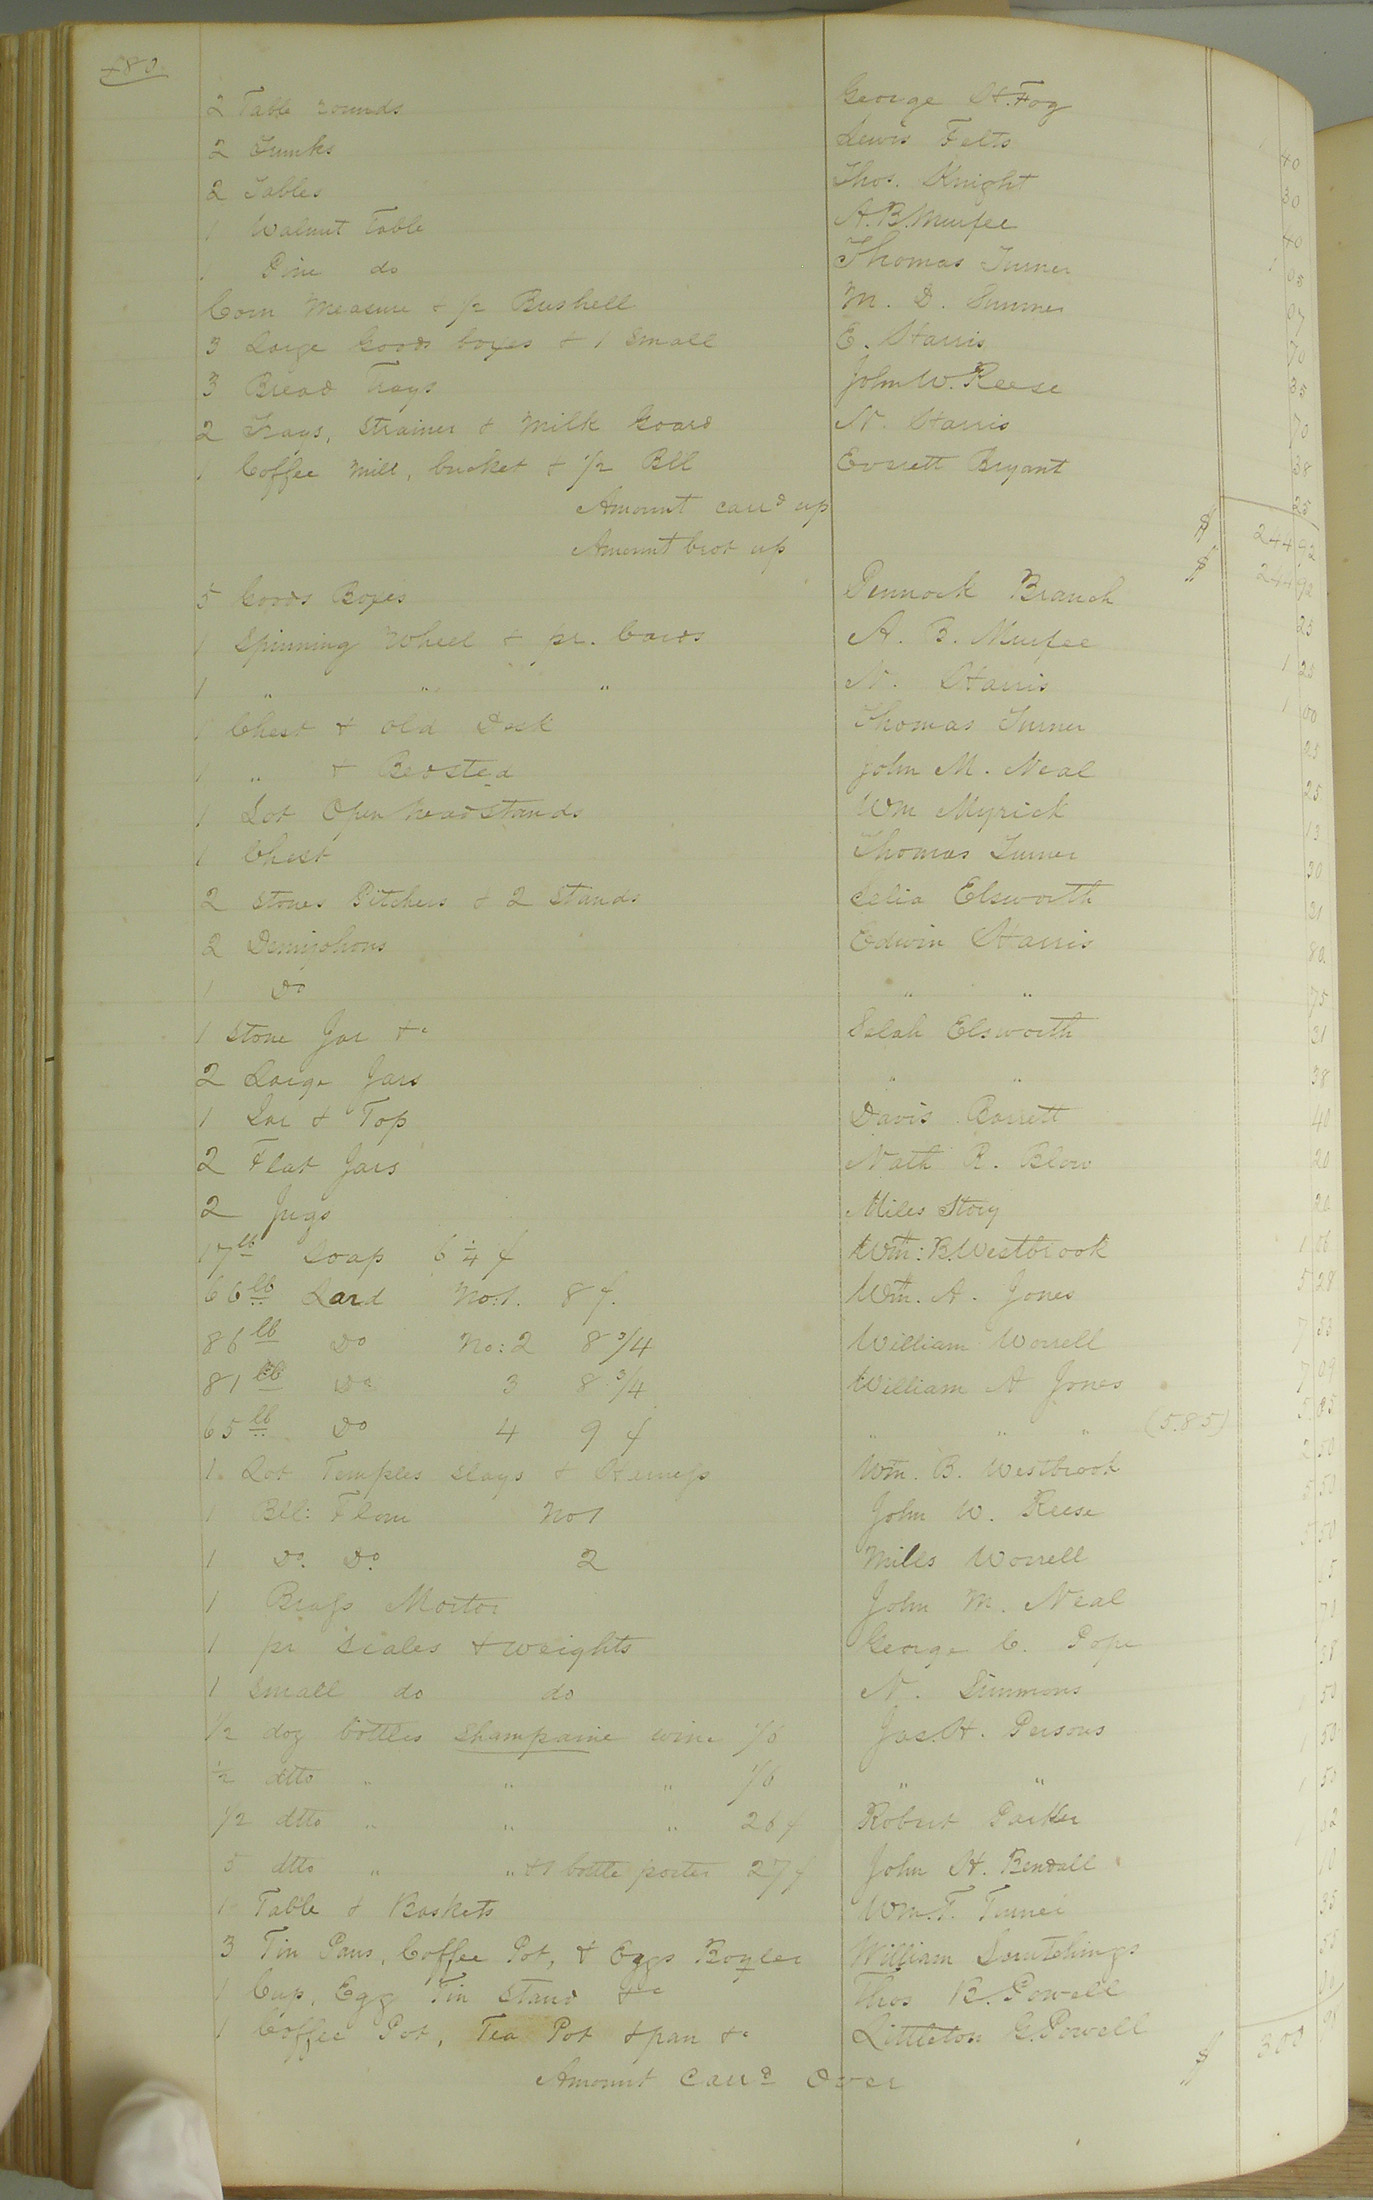 480
2 Table rounds George H. Fog
2 Trunks Lewis Felts 40
2 Tables Thos. Knight 30
1 Walnut Table A. B. Murfee 40
Pine do Thomas Turner 1 05
Corn Measure & 1/2 Bushell M. D. Sumner 07
3 Large Goods boxes & 1 Small E. Harris 70
3 Bread Trays John W. Reese 35
2 Trays, Strainer & Milk Goard N. Harris 70
1 Coffee Mill, bucket & 1/2 Bll Everett Bryant 38
25
Amount carrd up $ 244 92
Amount brot up $ 244 92
5 Goods Boxes Pennock Branch 25
1 Spinning Wheel & pr. Cards A. B. Murfee 1 25
1 " " " N. Harris 1 00
1 Chest & old Desk Thomas Turner 25
1 " & Bedsted John M. Neal 25
1 Lot Open head stands Wm Myrick 13
1 Chest Thomas Turner 30
2 Stones Pitchers & 2 Stands Selia Elsworth 21
2 Demijohns Edwin Harris 80
1 Do " " 75
1 Stone Jar &c Selah Elsworth 31
2 Large Jars " " 38
1 Jar & Top Davis Barrett 40
2 Flat Jars Nath R. Blow 20
2 Jugs Miles Story 20
17 lb Soap 6 1/4 ¢ Wm: B. Westbrook 1 06
66 lb Lard No: 1. 8 ¢. Wm. A. Jones 5 28
86 lb Do No: 2 8 3/4 William Worrell 7 53
81 lb Do 3 8 3/4 William A Jones 7 09
65 lb Do 4 9 ¢ " " " (5.85) 5 85
1 Lot Temples Slays & Harness Wm. B. Westbrook 2 50
1 Bll: Flour No 1 John W. Reese 5 50
1 Do. Do. 2 Miles Worrell 5 50
1 Brass Mortor John M. Neal
1 pr Scales & weights George C. Pope 70
1 Small do do N. Simmons 38
1/2 doz bottles Shampaine wine 1/6 Jas. H. Persons 1 50
1/2 ditto " " " 1/6 " " 1 50
1/2 ditto " " 26 ¢ Robert Parker 1 50
5 ditto " " & 1 bottle porter 27 ¢ John H. Kendall 1 62
1 Table & Baskets Wm. T. Turner 10
3 Tin Pans, Coffee Pot, & Eggs Boyler William Scrutchings 35
1 Cup, Egg Tin Stand &c Thos B. Powell 55
1 Coffee Pot, Tea Pot & pan &c Littleton G. Powell
Amount Carrd Over $ 300